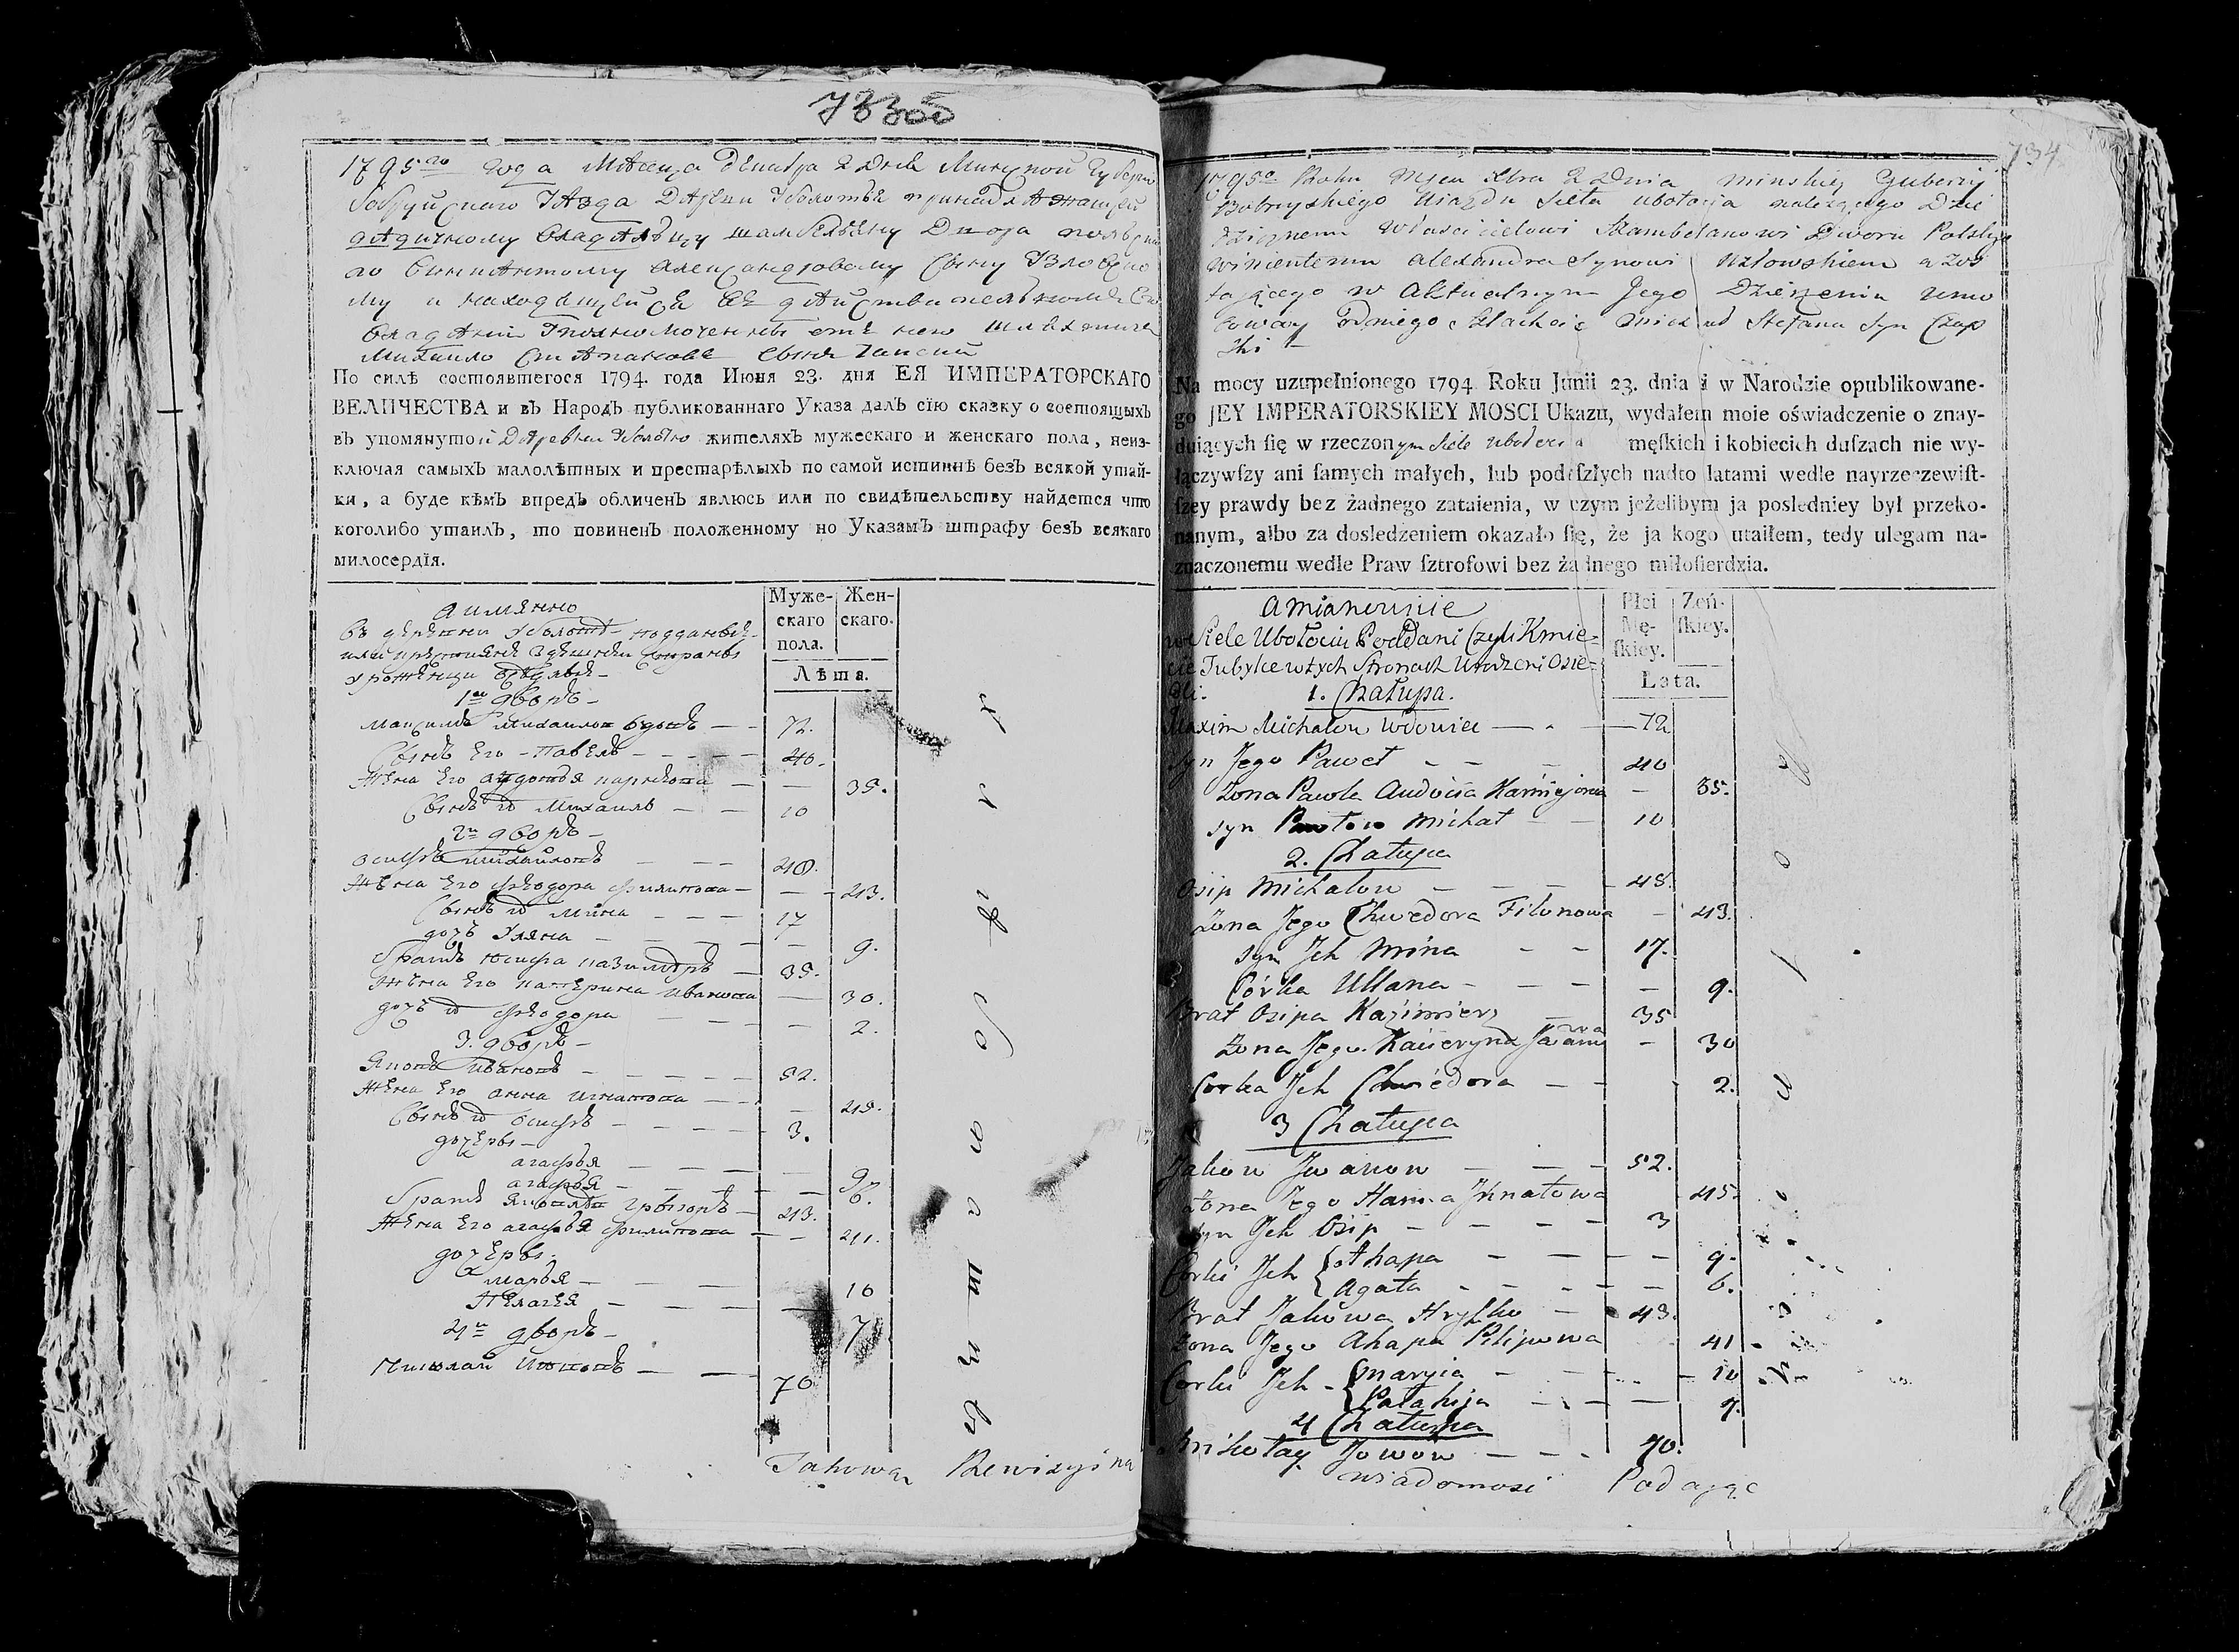 733об
1795го года Месеца Декабра 2 дня Минской Губерни
Бобруйского Уезда Деревни Уболотья принадлежащей
дедичному владельцу шамбеляну Двора польска
го Винцентому Александровому Сыну
му и находящейся в действительном Ево
владении Уполномоченный от него шляхтич
Михайло Степанов Сын Чапский
По силѣ состоявшегося 1794. года Июня 23. дня ЕЯ ИМПЕРАТОРСКАГО
ВЕЛИЧЕСТВА и въ Народъ публикованнаго Указа далъ сїю сказку о состоящыхъ
въ упомянутой Деревни Уболотю жителяхъ мужескаго и женскаго пола, неиз-
ключая самыхъ малолѣтныхъ и престарѣлыхъ по самой истиннѣ безъ всякой утай-
ки, а буде кѣмъ впредъ обличенъ явлюсь или по свидѣтельству найдется что
коголибо утаилъ, то повиненъ положенному по Указамъ штрафу безъ всякаго
милосердїя.
а имянно
в деревни Уболотю подданые
или крестьяне здешнеи стораны
уроженцы
1й двор
Муже-
скаго
пола.
Жен-
скаго.
Лѣта.
Максим Михайлов вдов — 72.
Сын Его Павел — 40.
Жена Его Авдотья — 35.
Сын их Михаил — 10
2й двор
Осиф Михайлов — 48.
Жена Его Феодора Филипова — 43.
Сын их Мина — 17
дочь Уляна — 9.
Брат Юсифа Казимер — 35.
Жена Его Катерина Иванова — 30.
дочь их Феодора — 2.
3. двор
Яков Иванов — 52.
Жена Его Анна Игнатова — 45.
Сын их Осиф — 3.
дочеры
Агафья — 9.
Агафья — 6.
Брат Якова Грыгор — 43.
Жена Его Агафья Филипова — 41.
дочеры
Марья — 10
Пелагея — 7
4й двор
Николай — 70
Takowa Rewizyina
734
1795o Roku Mjca Xbra 2 Dnia Minskiey Gubernij
Bobruyskiego Ujazdu Sieła Ubołocia należącego Dzie
dzicznemu Właścicielowi Szambelanowi Dworu Polskiego
Wincentemu Alexandra Synowi a zos
tającego w Aktualnym Jego Dzierżeniu Umo
cowany od niego Szlachcic Michał Stefana Syn Czap
ski
Na mocy uzupełnionego 1794 Roku Junii 23. dnia i w Narodzie opublikowane-
go JEY IMPERATORSKIEY MOSCI Ukazu, wydałem moie oświadczenie o znay-
duiących ſię w rzeczonym Siele Ubołociu męſkich i kobiecich duſzach nie wy-
łączywſzy ani ſamych małych, lub podeſzłych nadto latami wedle nayrzeczewiſt-
ſzey prawdy bez żadnego zataienia, w czym jeżelibym ja posledniey był przeko-
nanym, albo za dosledzeniem okazało ſię, że ja kogo utaiłem, tedy ulegam na-
znaczonemu wedle Praw ſztrofowi bez żadnego miłoſierdzia.
A mianowicie
w Siele Ubołociu Poddani Czyli Kmie-
cie Tubylce w tych Stronach Urodzeni Osie-
dli.
1. Chałupa.
Płci
Mę-
ſkiey.
Zeń-
ſkiey.
Lata.
Maxim Michałow Wdowiec — 72
Syn Jego Paweł — 40
Zona Pawła Audocia — 35.
Syn Pawłow Michał — 10
2. Chałupa
Osip Michałow — 48.
Zona Jego Chwedora Filonowa — 43.
Syn Jch Mina — 17.
Córka Ullana — 9.
Brat Osipa Kazimierz — 35
Zona Jego Kacieryna Jwanowa — 30
Corka Jch Chwiedora — 2.
3 Chałupa
Jakow Jwanow — 52.
Zona Jego Hanna Jhnatowa 45.
Syn Jch Osip — 3
Corki Jch { Ahapa — 9.
Agata — 6.
Brat Jakowa Hryſko — 43.
Zona Jego Ahapa Pilipowa 41
Corki Jch { Maryia — 10
Pałahija — 7.
4 Chałupa
Mikołay Jowow — 70.
wiadomosi Podając